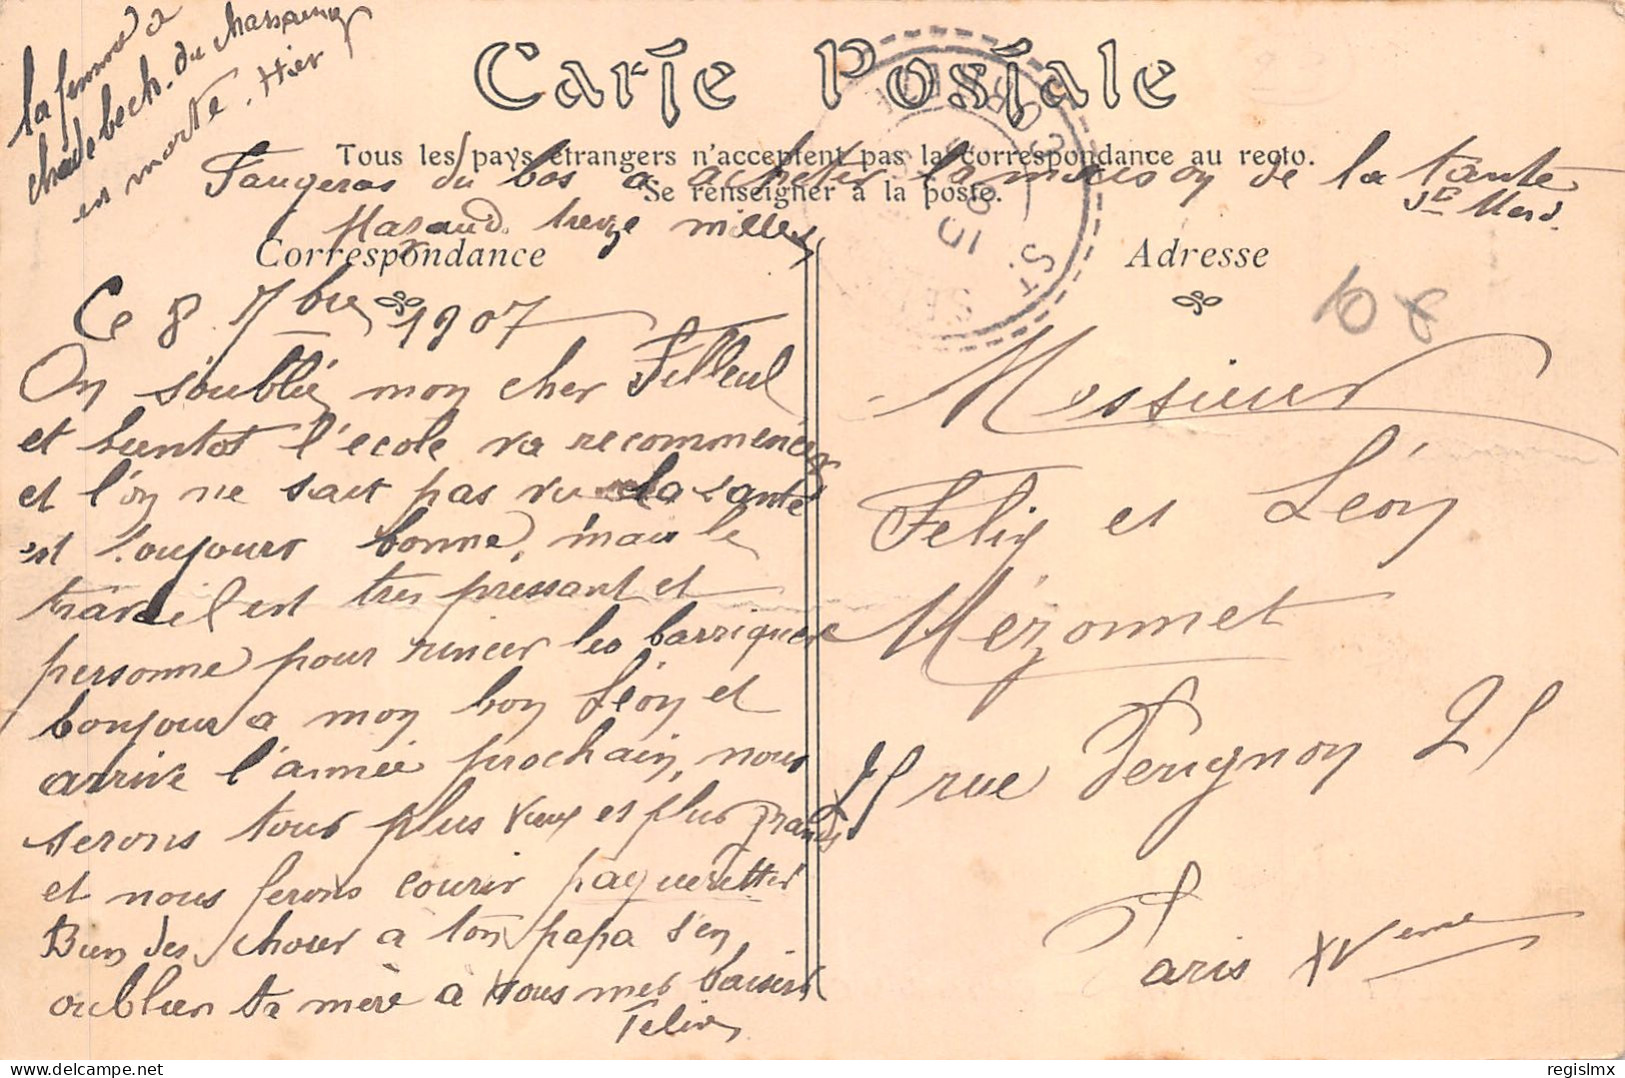 la femme à
chez bech. du chassaing
est morte. Hier
Carte Postale
Tous les pays étrangers n'acceptent pas la correspondance au recto.
Se renseigner à la poste.
Faugeras du bos a acheter la maison de la tante
Mazaud. treize milles
St Mard.
Correspondance
Ce 8 7bre 1907
On s'oublié mon cher Filleul
et bientot l'école va recommencer
et l'on ne sait pas vu la santé
est toujours bonne, mais le
travail est tres pressant et
personne pour rincer les barriques
bonjour a mon bon Léon et
arrive l'année prochain, nous
serons tous plus vieux et plus grands
et nous ferons courir paquerette
Bien des choses a ton papa s'en
oublier ta mère à tous mes baisers
Felix
Adresse
08
Messieur
Felix et Léon
Mézonnet
25 rue Perignon 25
Paris XVeme
regislmx